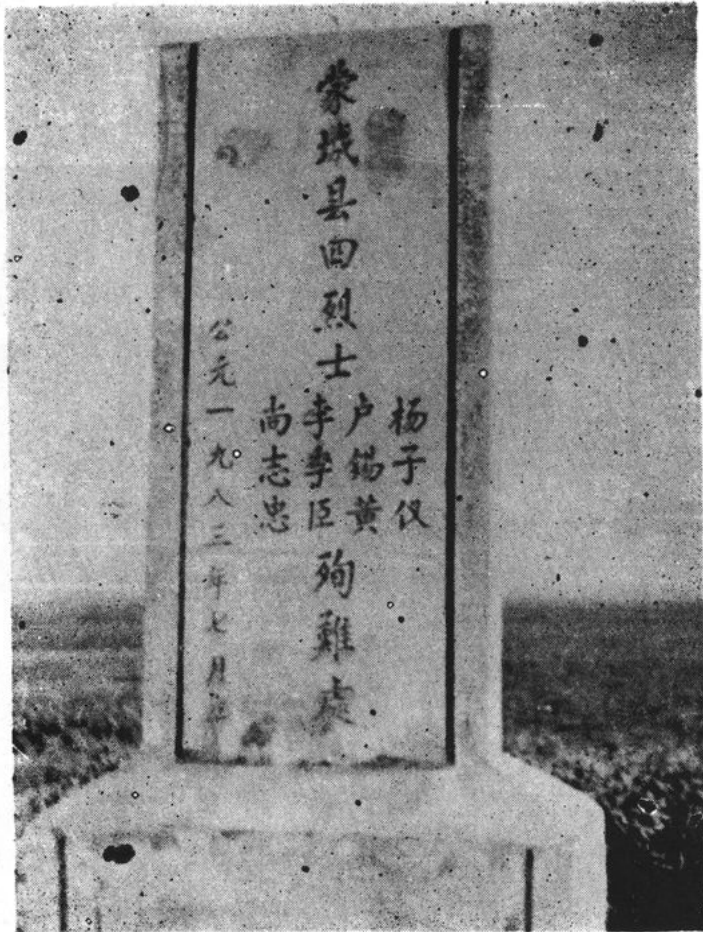 蒙城县四烈士
杨子仪
卢锡黄
李季臣
尚志忠
殉難处
公元一九八三年七月